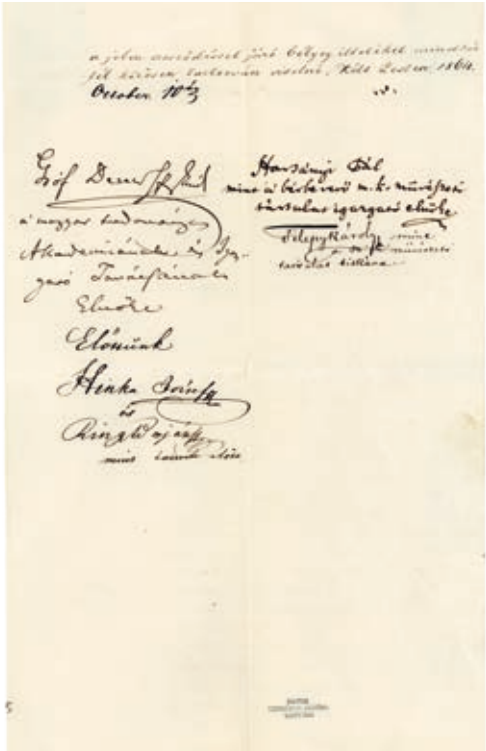 a jelen szerződéssel járó bélyeg illetéket mindkét
fél közösen tartozván viselni. Kelt Pesten, 1864.
October 10én
Gróf Dessewffy Emil
a magyar tudományos
Akademiának és Igaz-
gató Tanácsának
Elnöke
Előttünk
Hinka József
és
mint tanuk előtt
Harsányi Pál
mint a bérbevevő m. k. művészeti
társulat igazgató elnöke
Telepy Károly mint
a m. k. művészeti
társulat titkára
MAGYAR
TUDOMÁNYOS AKADÉMIA
KÖNYVTÁRA